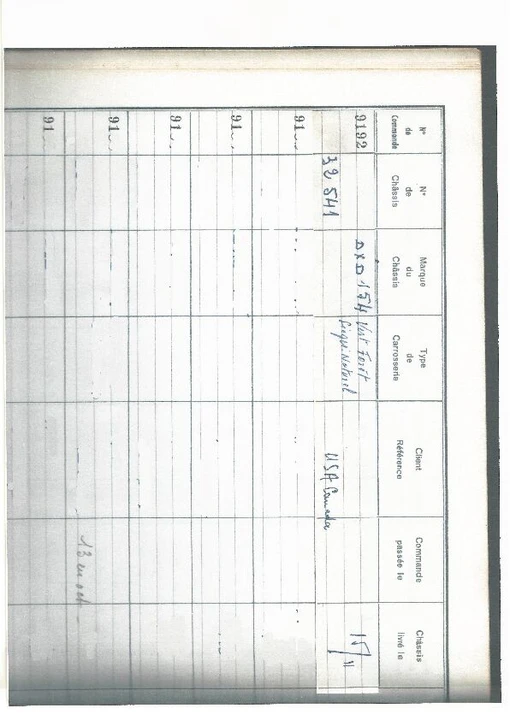 N° de Commande
N° de Châssis
Marque du Châssis
Type de Carrosserie
Client Référence
Commande passée le
Châssis livré le
9192
32 541
DXD 154
Vert Forêt
USA Canada
15/11
91
91
91
91
91
13 en oct